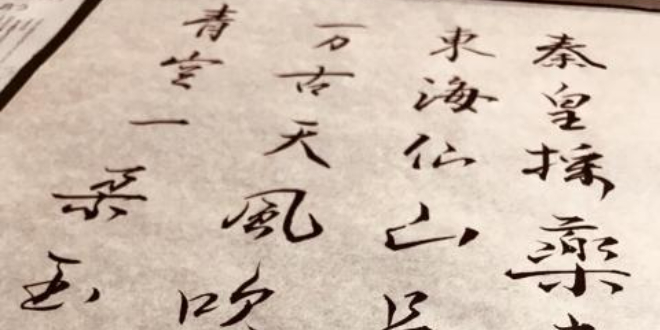 秦皇採藥
東海仙山
万古天風吹
青空一朶玉